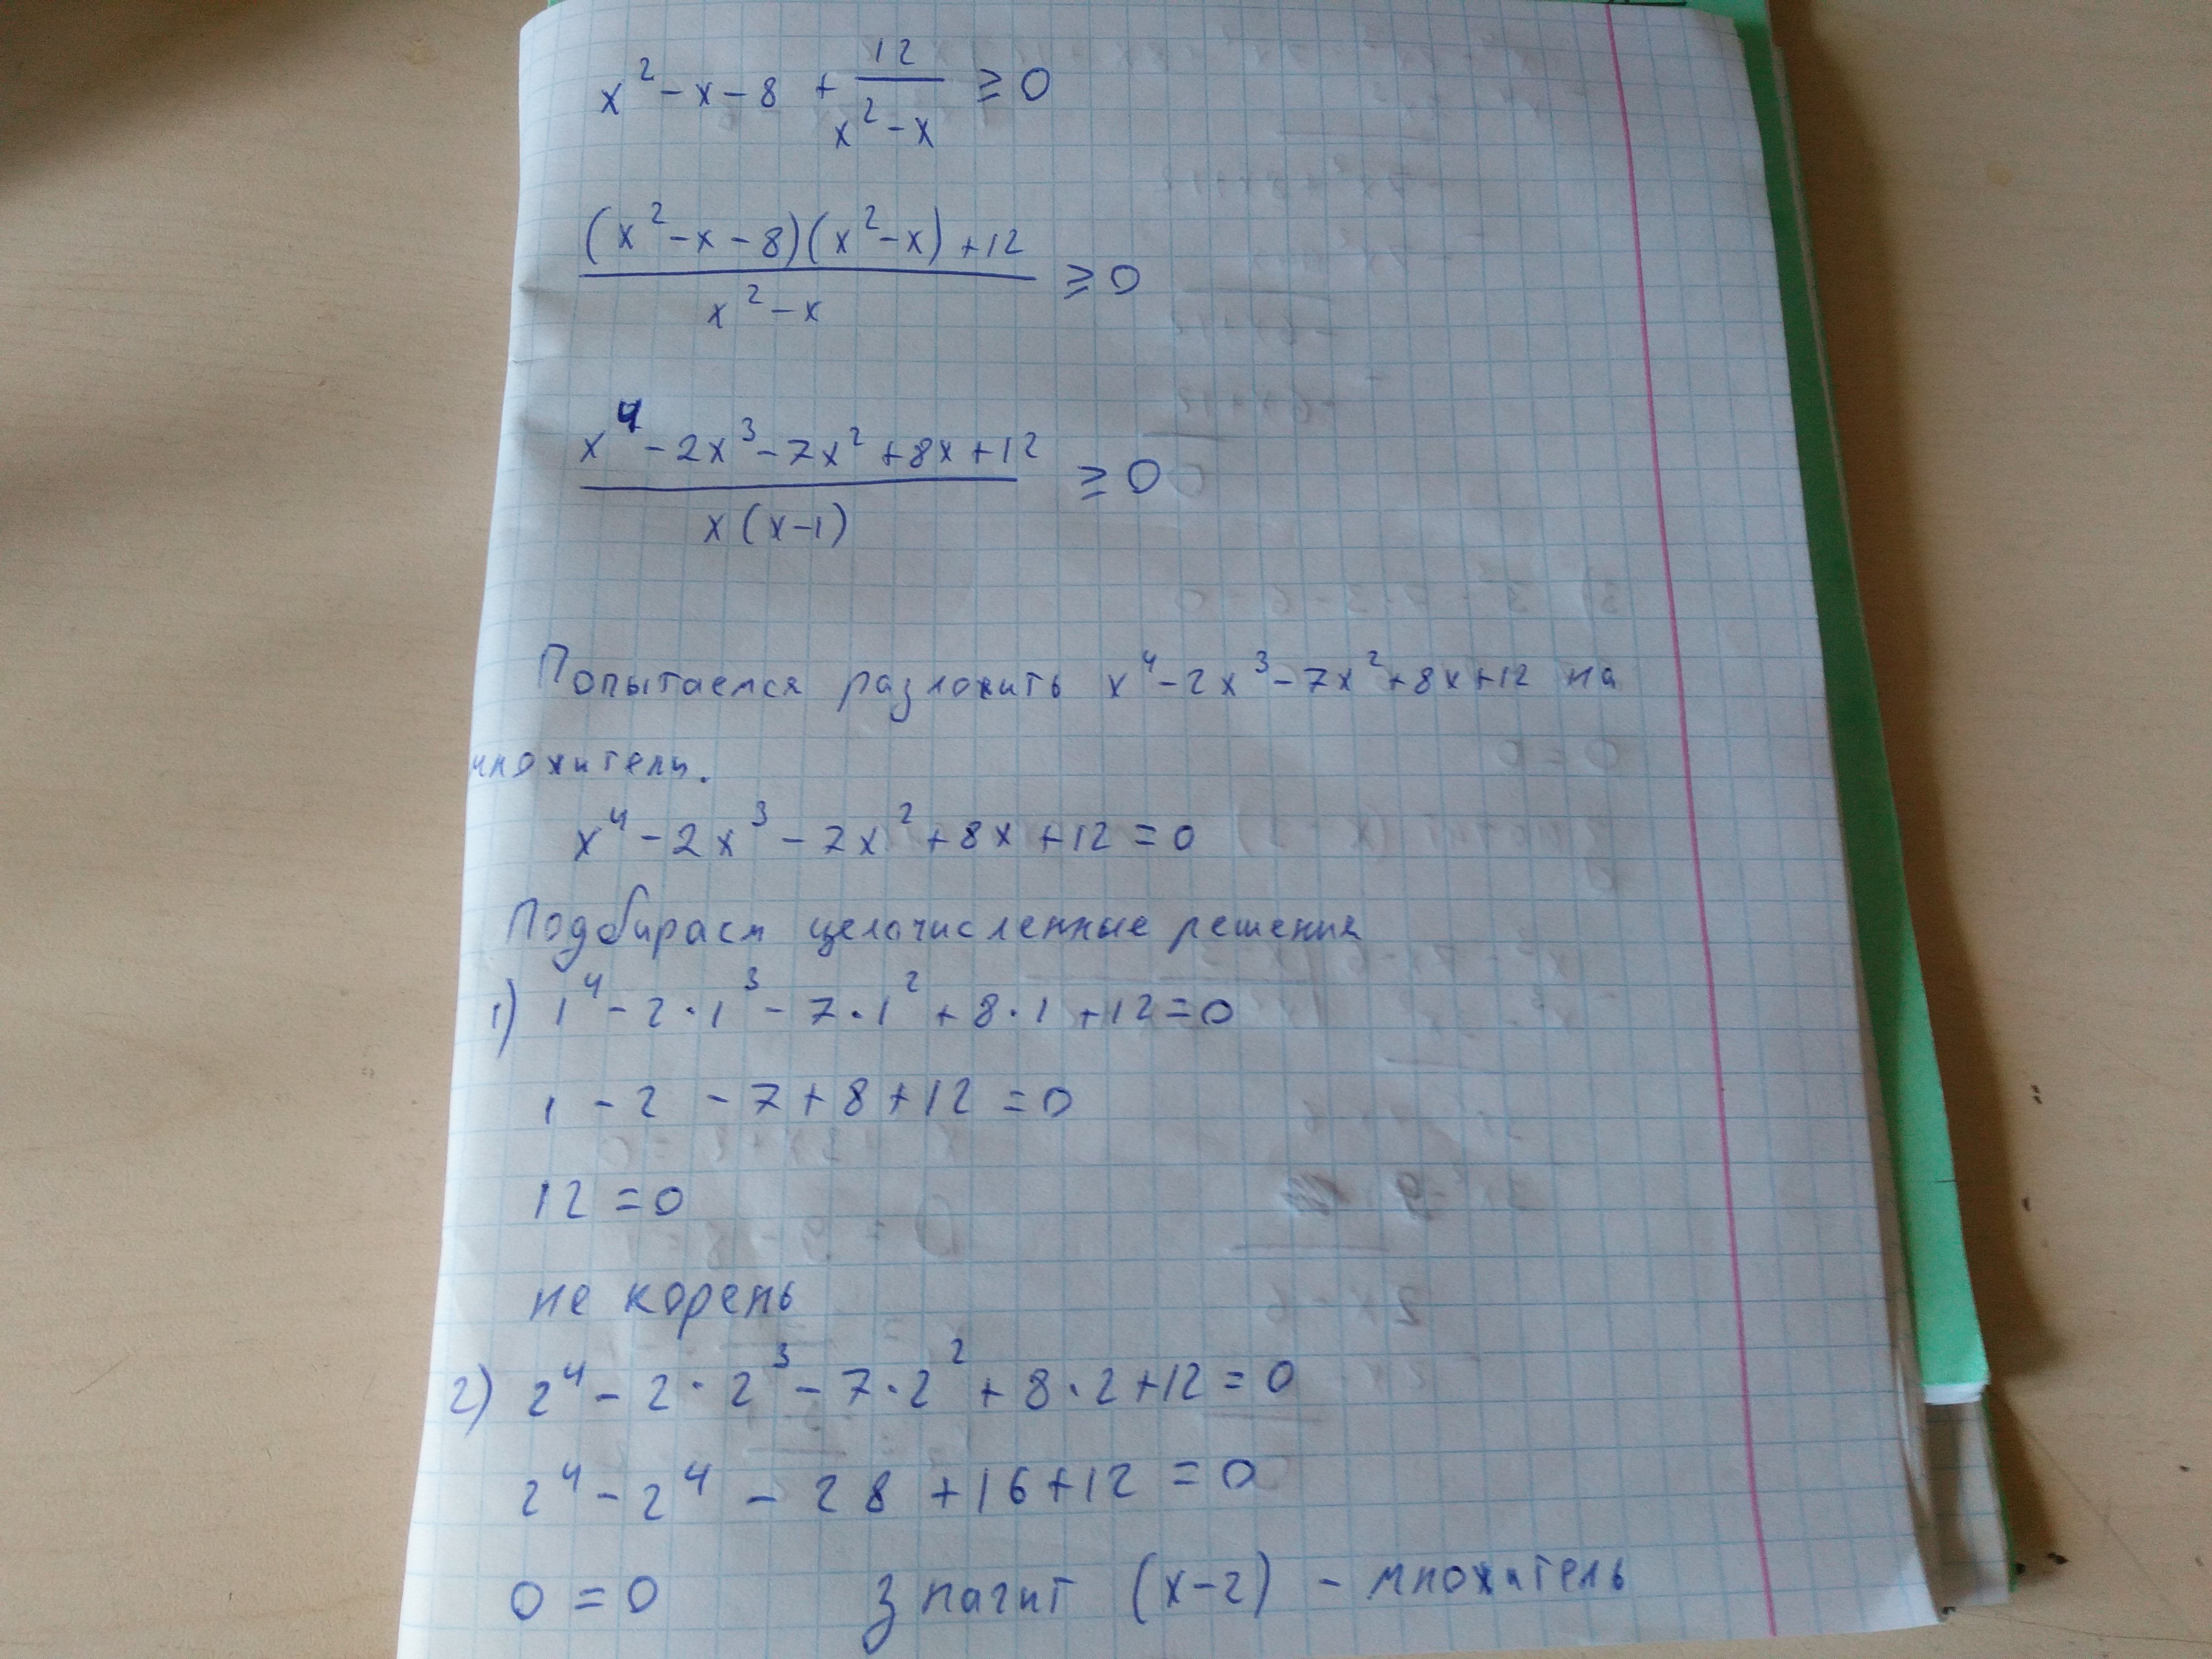 x² - x - 8 + 12/(x² - x) ≥ 0
((x² - x - 8)(x² - x) + 12)/(x² - x) ≥ 0
(x⁴ - 2x³ - 7x² + 8x + 12)/(x(x - 1)) ≥ 0
Попытаемся разложить x⁴ - 2x³ - 7x² + 8x + 12 на
множители.
x⁴ - 2x³ - 7x² + 8x + 12 = 0
Подбираем целочисленные решения
1) 1⁴ - 2·1³ - 7·1² + 8·1 + 12 = 0
1 - 2 - 7 + 8 + 12 = 0
12 = 0
не корень
2) 2⁴ - 2·2³ - 7·2² + 8·2 + 12 = 0
2⁴ - 2⁴ - 28 + 16 + 12 = 0
0 = 0 значит (x - 2) - множитель